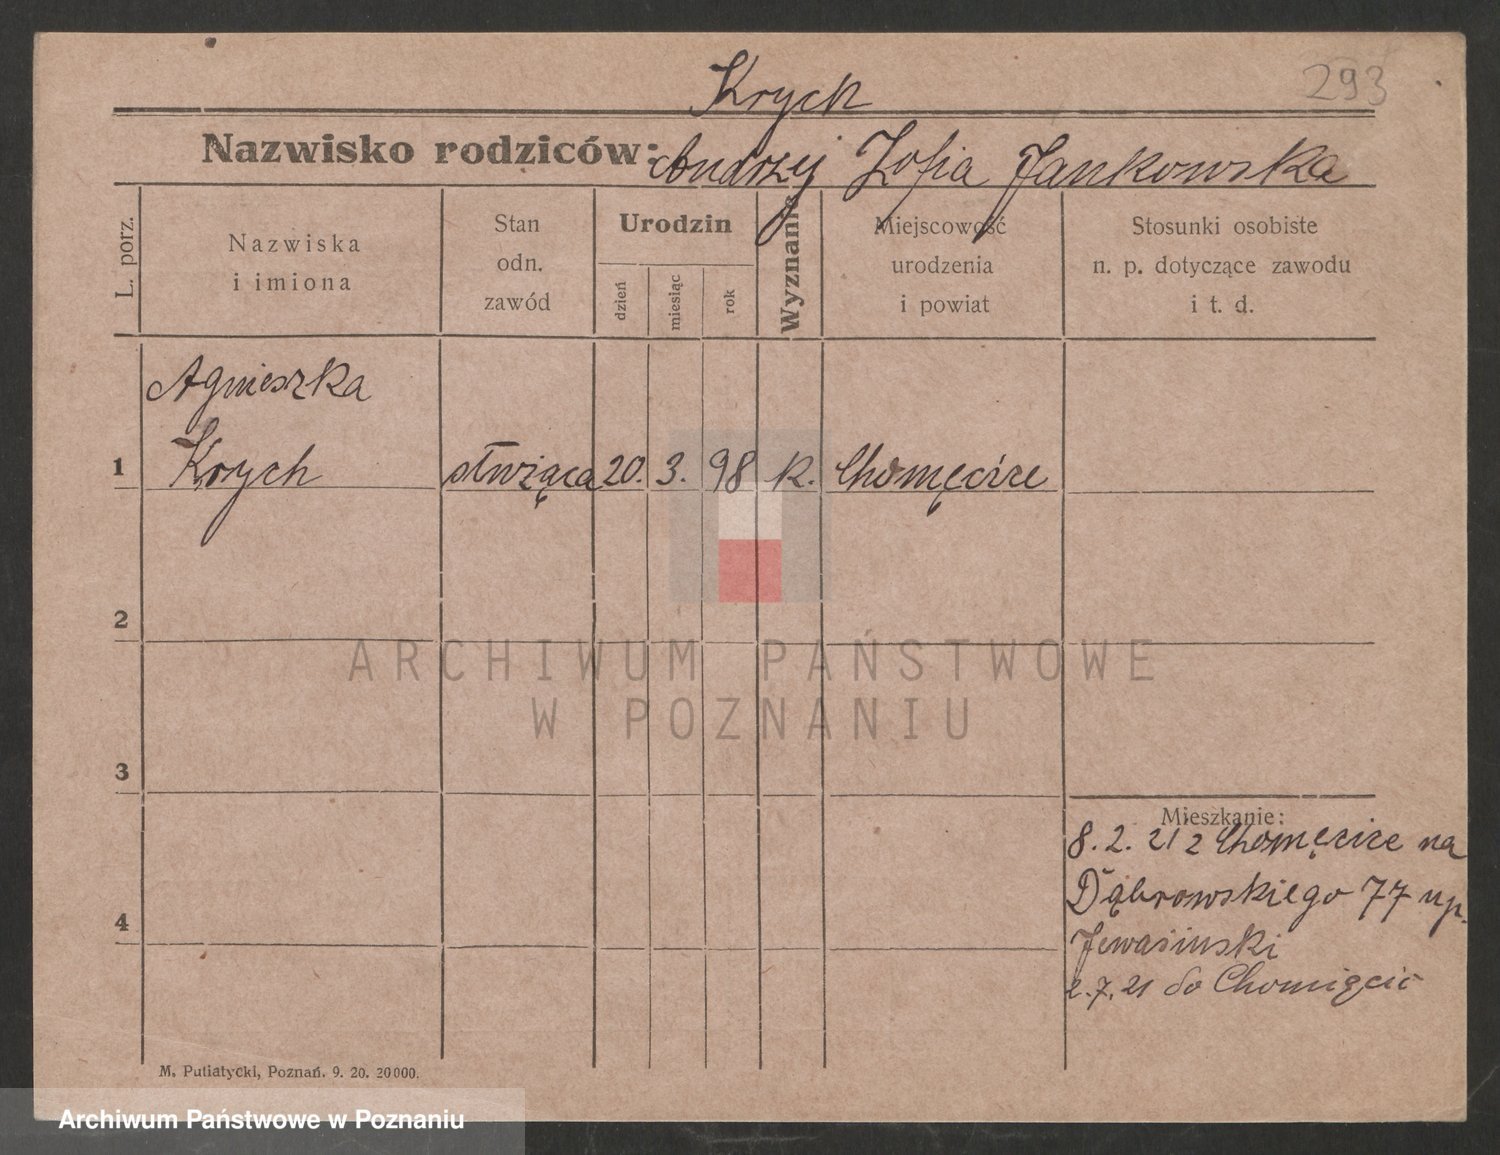 293
Krych
Nazwisko rodziców: Andrzej Zofia Jankowska
L. porz.
Nazwiska
i imiona
Stan
odn.
zawód
Urodzin
dzień
miesiąc
rok
Wyznanie
Miejscowość
urodzenia
i powiat
Stosunki osobiste
n. p. dotyczące zawodu
i t. d.
Agnieszka
1 Krych służąca 20. 3. 98 k. Chomęcice
2
ARCHIWUM PAŃSTWOWE
W POZNANIU
3
4
Mieszkanie:
8. 2. 21 z Chomęcice na
Dąbrowskiego 77 up.
2. 7. 21 do
M. Putiatycki, Poznań. 9. 20. 20000.
Archiwum Państwowe w Poznaniu